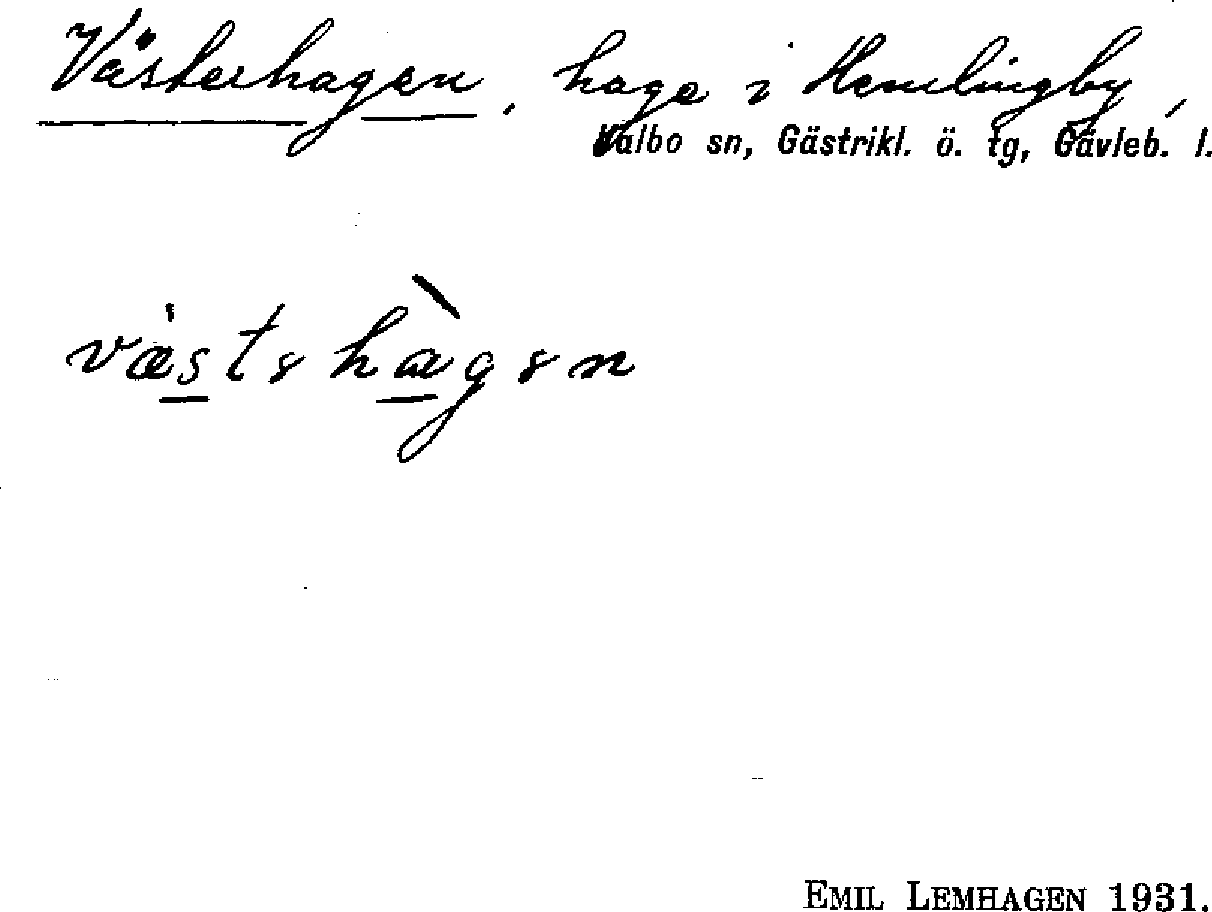 Västerhagen, hage i Hemlingby,
Valbo sn, Gästrikl. ö. tg, Gävleb. l.
væ̀stəhàgən
EMIL LEMHAGEN 1931.